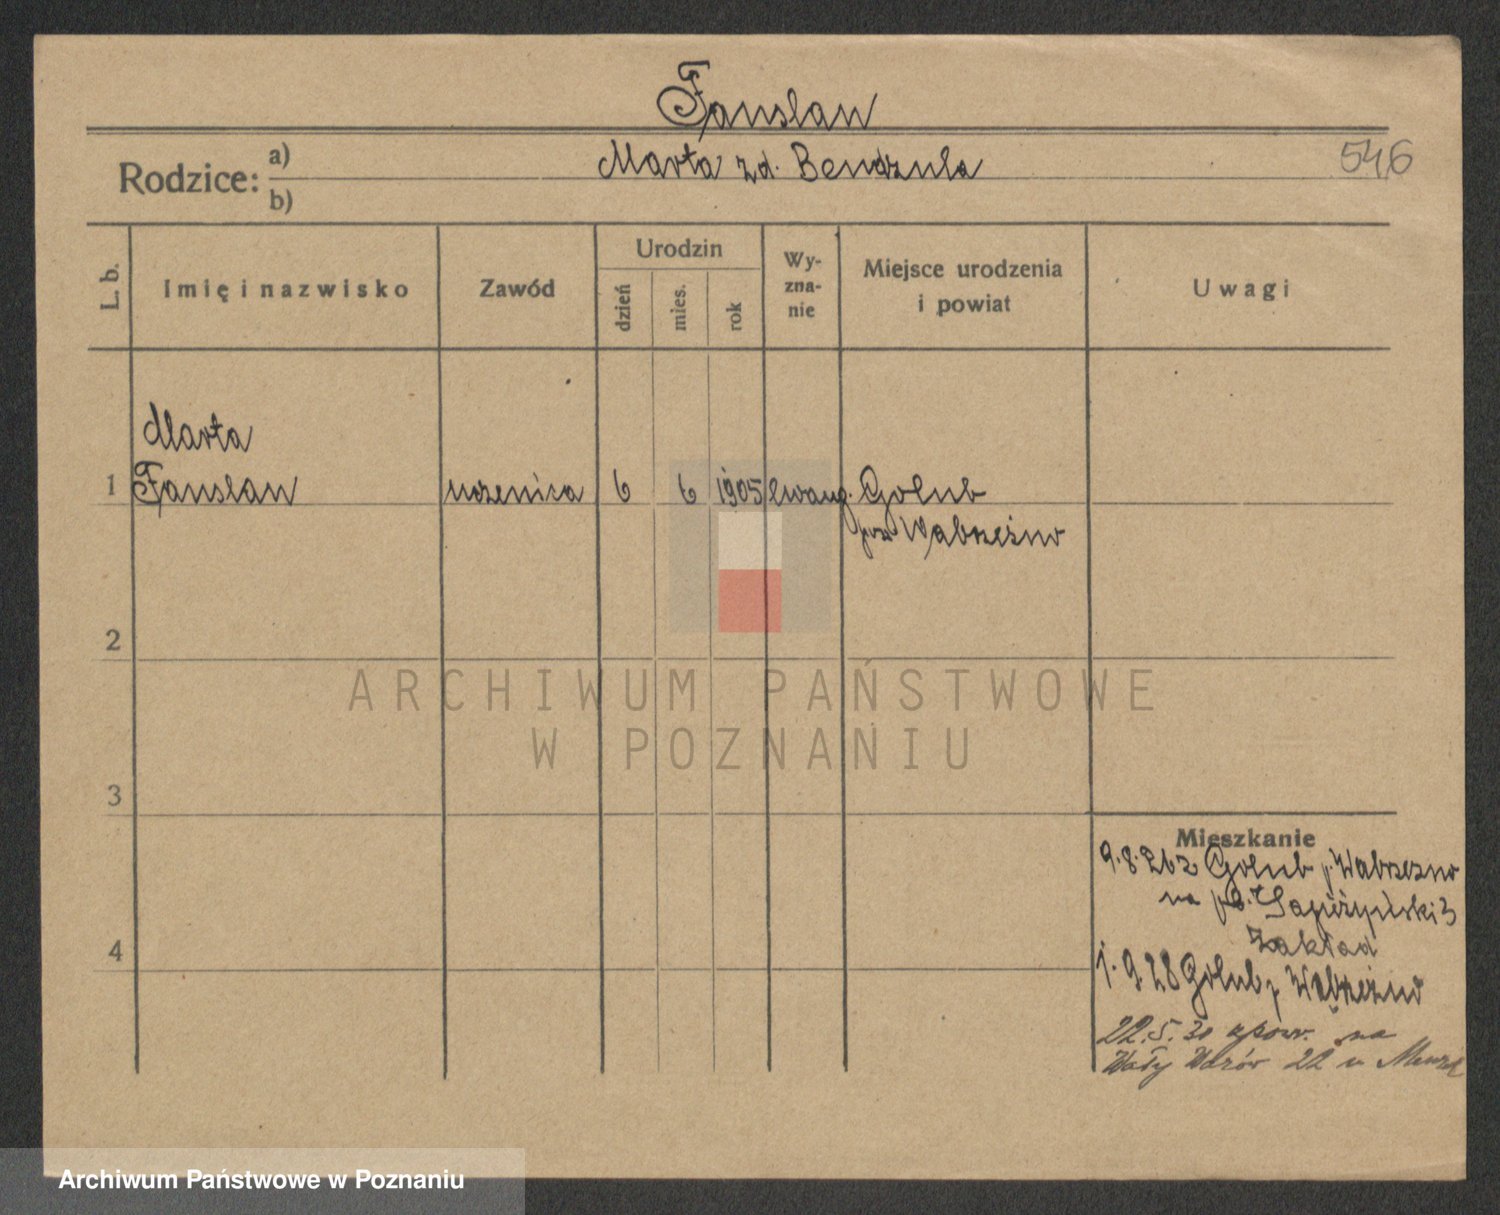 Fanslau
546
Rodzice: a) Marta zd. Bendzula
b)
L. b.
Imię i nazwisko
Zawód
Urodzin
dzień
mies.
rok
Wy-
zna-
nie
Miejsce urodzenia
i powiat
Uwagi
Marta
1 Fanslau uczenica 6 6 1905 ewang. Golub
pow Wąbrzeźno
2
3
4
Mieszkanie
9.8.26 z Golub p. Wabrzezno
na pl. Sapieżyński 3
Zakład
1.9 28 Golub p. Wąbrzeźno
22.5.30 z pow. na
Wały Wazów 22 u
ARCHIWUM PAŃSTWOWE
W POZNANIU
Archiwum Państwowe w Poznaniu